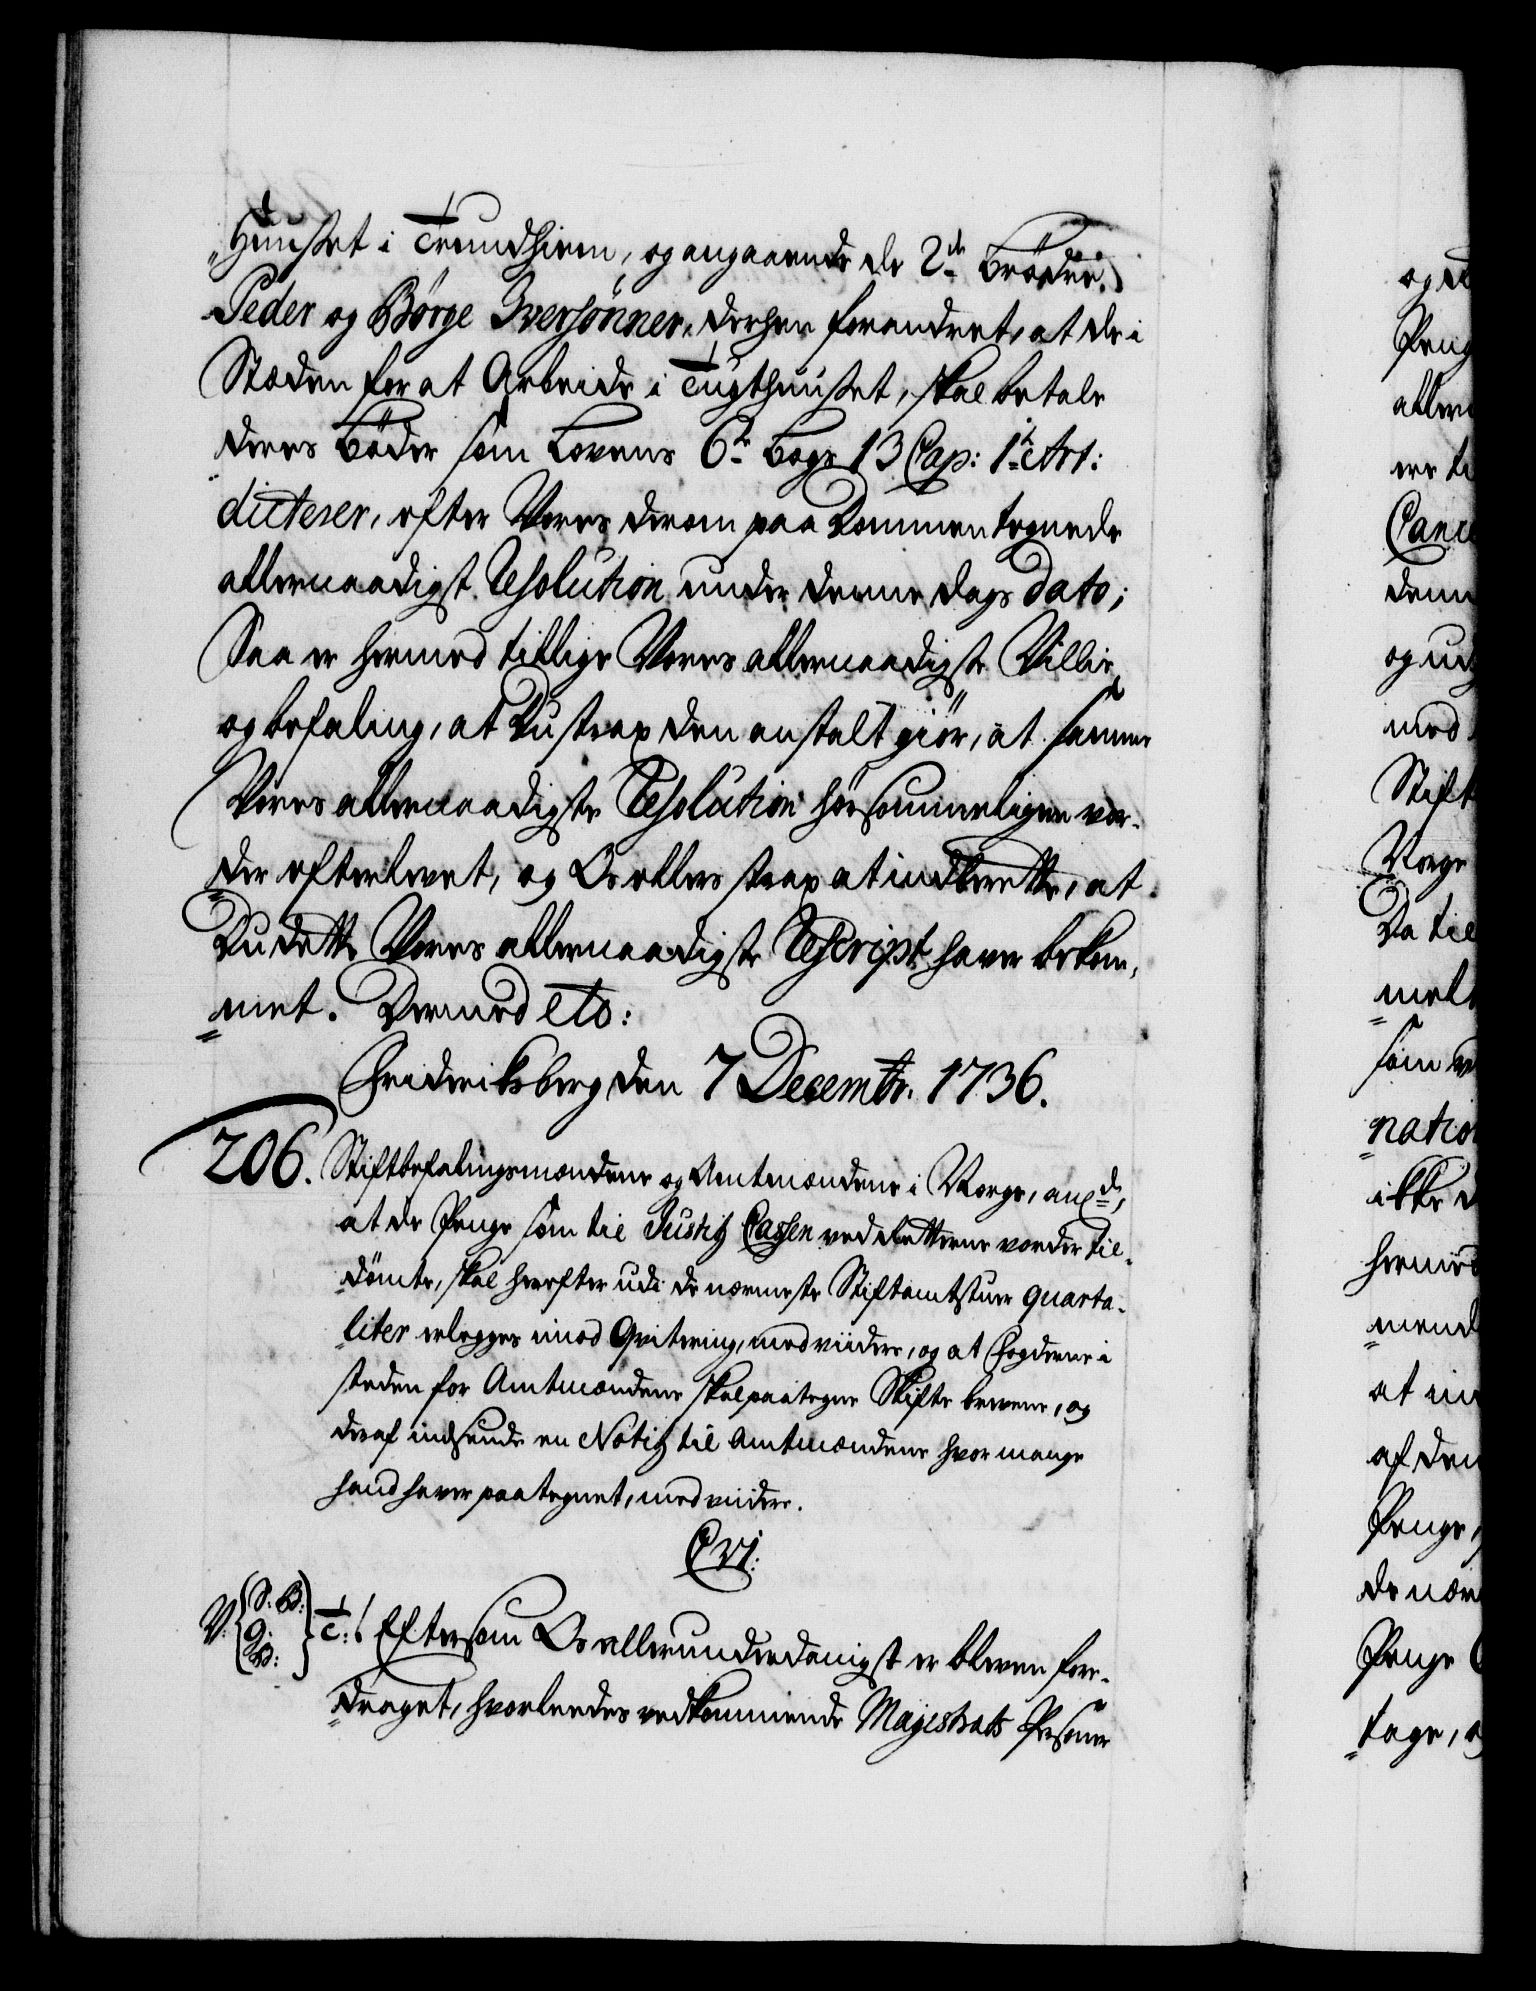 "Huuset i Trundhiem, og angaaende de 2de Brödre,
Peder og Börge Iversönner, derhen forandret, at de i
Stæden for at Arbeide i Tugthuuset, skal betale
deres Böder som Lovens 6te Bogs 13 Cap: 1te Art:
dicterer, efter Vores derom paa Dommen tegnede
allernaadigst Resolution under denne dags dato;
Saa er hermed tillige Vores allernaadigste Villie
og befaling, at Du strax den anstalt giör, at samme
Vores allernaadigste Resolution hörsommeligen vor-
der efterlevet, og Os ellers strax at indberette, at
Du dette Vores allernaadigste Rescript haver bekom-
=met. Dermed etc:
Frideriksberg den 7 Decembr. 1736.
206. Stiftbefalingsmændene og Amtmændene i Norge, angde,
at de Penge som til Justitz Cassen ved Retterne vorder til-
=dömte, skal herefter udi de nærmeste Stiftamtstuer quarta-
=liter erlegges imod Qvitering, med viidere, og at Fogderne i
steden for Amtmændene skal paategne Skifte brevene, og
deraf indsende en Notitz til Amtmændene hvor mange
hand haver paategnet, med viidere.
C VI.
V: {S. B: G: B:} T: C: ! Eftersom Os allerunderdanigst er bleven fore-
=draget, hvorleedes vedkommende Magistrats Persone
og d
Peng
aller
ere ti
Canc
denn
og ud
med
Stift
Norge
Da til
melt
=
som ve
natio
=
ikke d
hermed
mend
=
at im
af den
Penge,
de nær
Penge
=tage, o